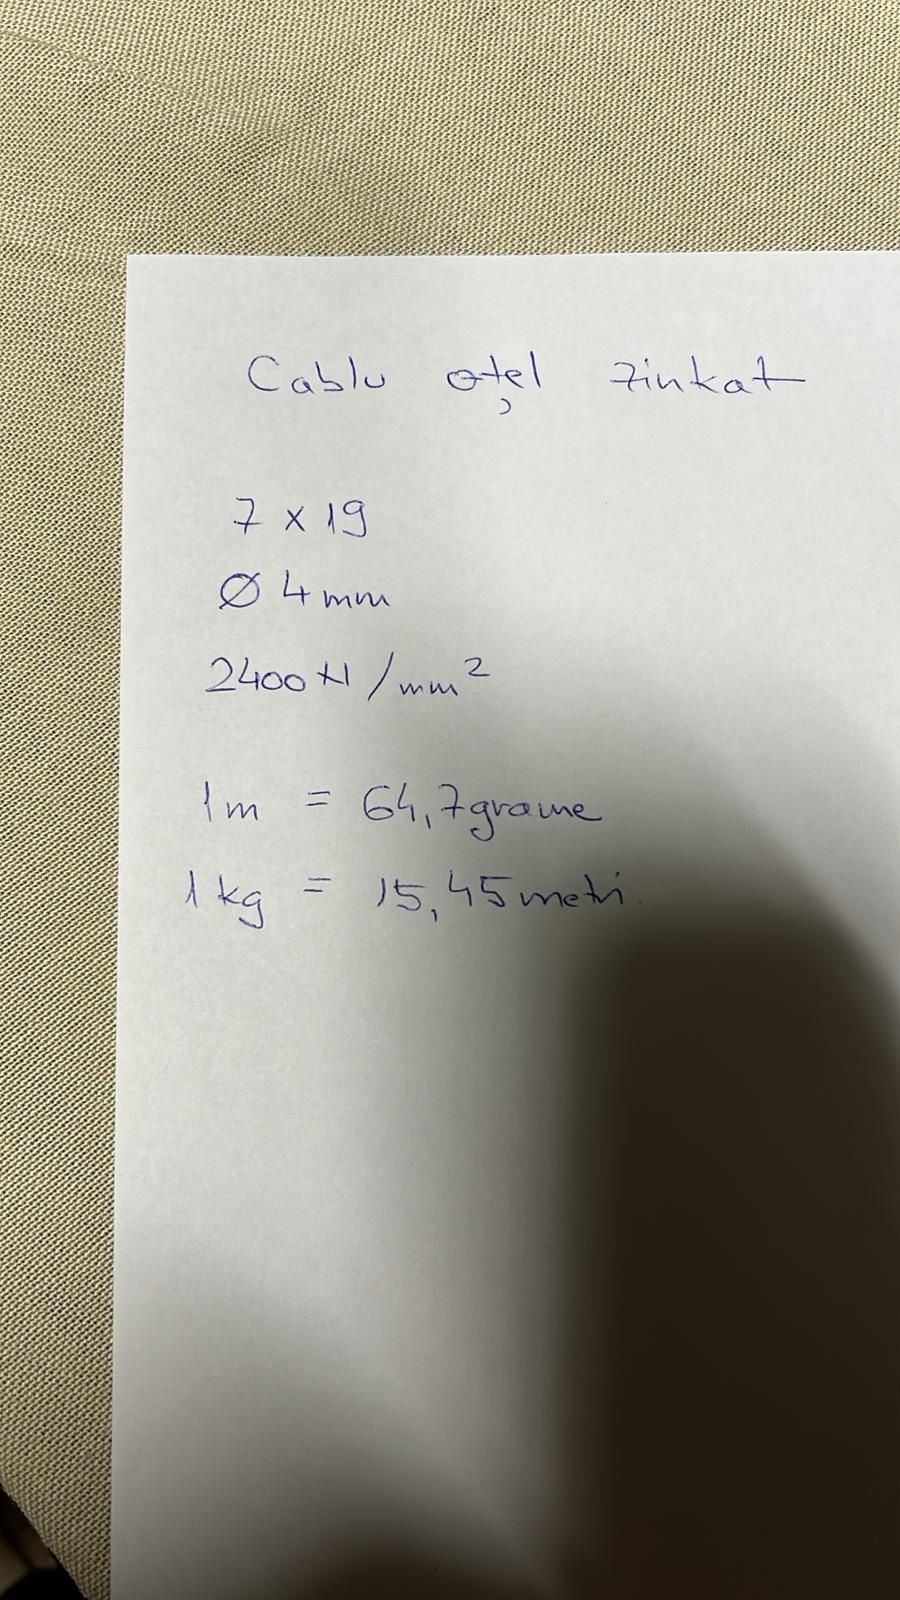 Cablu oțel zinkat
7 x 19
Ø 4 mm
2400 N / mm²
1 m = 64,7 grame
1 kg = 15,45 metri